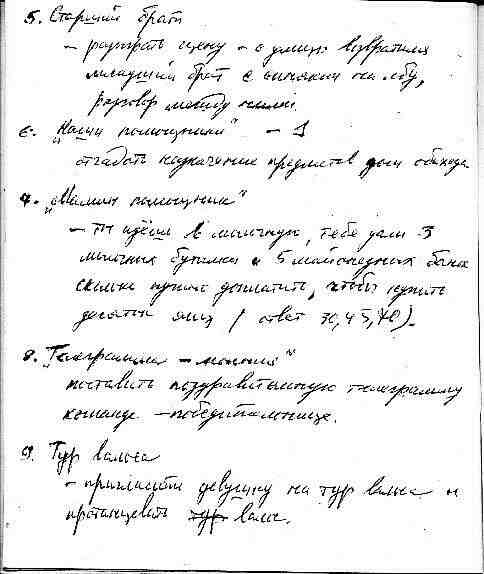 5. Старший брат
- разыграть сцену - с улицы возвратился
младший брат с синяком на лбу,
разговор между ними.
6. "Наши помощники" - 1
отгадать назначение предметов домобихода
7. "Мамин помощник"
- Ты идёшь в молочную, тебе дали 3
молочных бутылки и 5 майонезных банок
сколько нужно доплатить, чтобы купить
десяток яиц (ответ
8. "Телеграмма - молния"
поставить поздравительную телеграмму
команде - победительнице.
9. Тур вальса
- пригласить девушку на тур вальса и
протанцевать тур вальс.